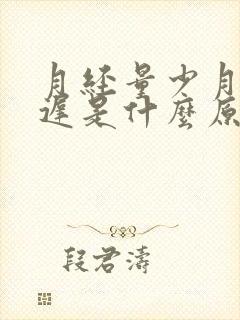 月經量少月
遲是什麼原
段君濤